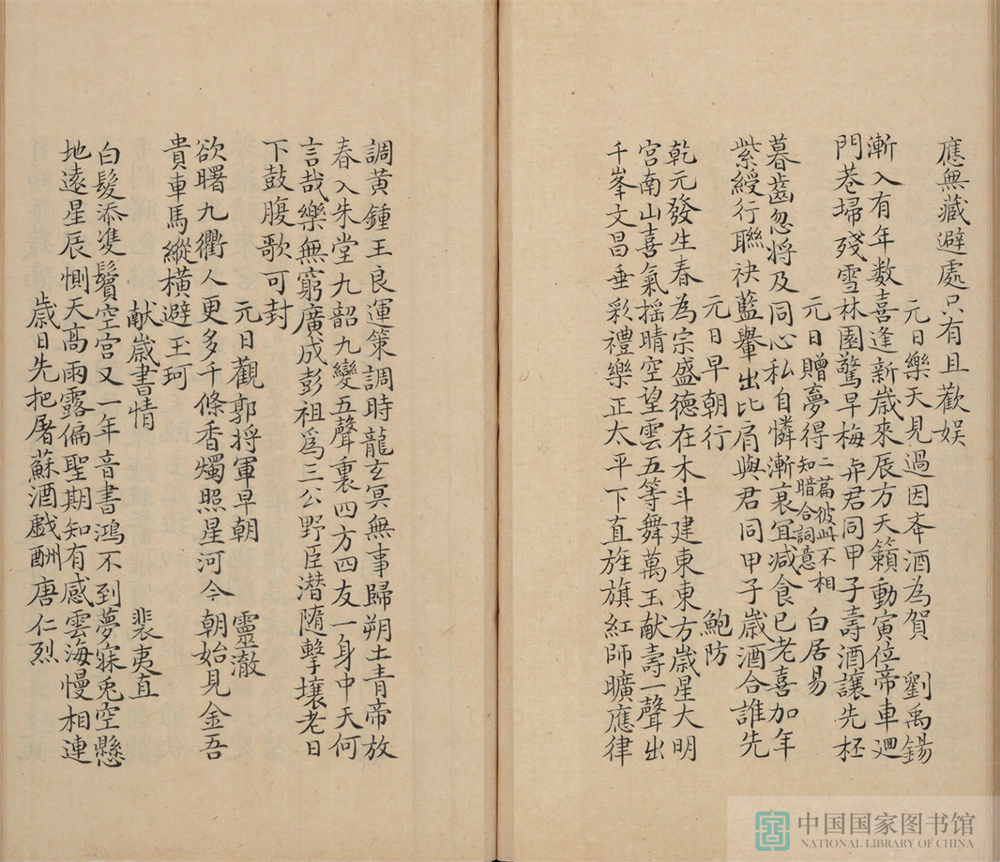 應無藏避處只有且歡娱
元日樂天見過因本酒為賀 劉禹錫
漸入有年数喜逢新歳來辰方天籟動寅位帝車廻
門巷埽殘雪林園驚早梅与君同甲子壽酒讓先柸
元日贈夢得 二篇彼此不相知暗合詞意 白居易
暮齒忽將及同心私自憐漸衰冝減食已老喜加年
紫綬行聯袂藍轝出比肩與君同甲子歳酒合誰先
元日早朝行 鮑防
乾元發生春為宗盛德在木斗建東東方歳星大明
宮南山喜氣摇晴空望雲五等舞萬玉献壽一聲出
千峯文昌垂彩禮樂正太平下直旌旗紅師曠應律
調黄鍾王良運策調時龍玄冥無事歸朔土青帝放
春入朱堂九韶九變五聲裏四方四友一身中天何
言哉樂無窮廣成彭祖爲三公野臣潜随擊壤老日
下鼓腹歌可封
元日觀郭將軍早朝 靈澈
欲曙九衢人更多千條香燭照星河今朝始見金吾
貴車馬縱横避玉珂
献歳書情 裴夷直
白髮添雙鬢空宮又一年音書鴻不到夢寐兎空懸
地遠星辰惻天高雨露偏聖期知有感雲海慢相連
歳日先把屠蘇酒戯酬唐仁烈
中国国家图书馆
NATIONAL LIBRARY OF CHINA